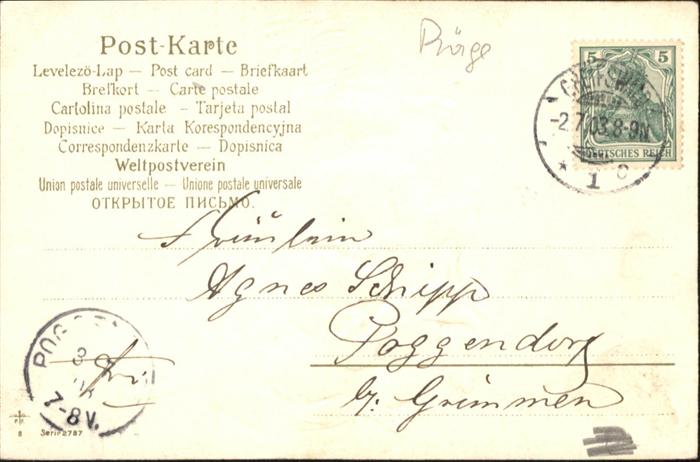 Post-Karte
Levelező-Lap — Post card — Briefkaart
Brefkort — Carte postale
Cartolina postale — Tarjeta postal
Dopisnice — Karta Korespondencyjna
Correspondenzkarte — Dopisnica
Weltpostverein
Union postale universelle — Unione postale universale
ОТКРЫТОЕ ПИСЬМО.
5 5
DEUTSCHES REICH
GREIFSWALD
-2.7.03.8-9N
* 1 c
Fräulein
Agnes Schipp
Poggendorf
bz. Grimmen
7-8V.
8 Serie 2787